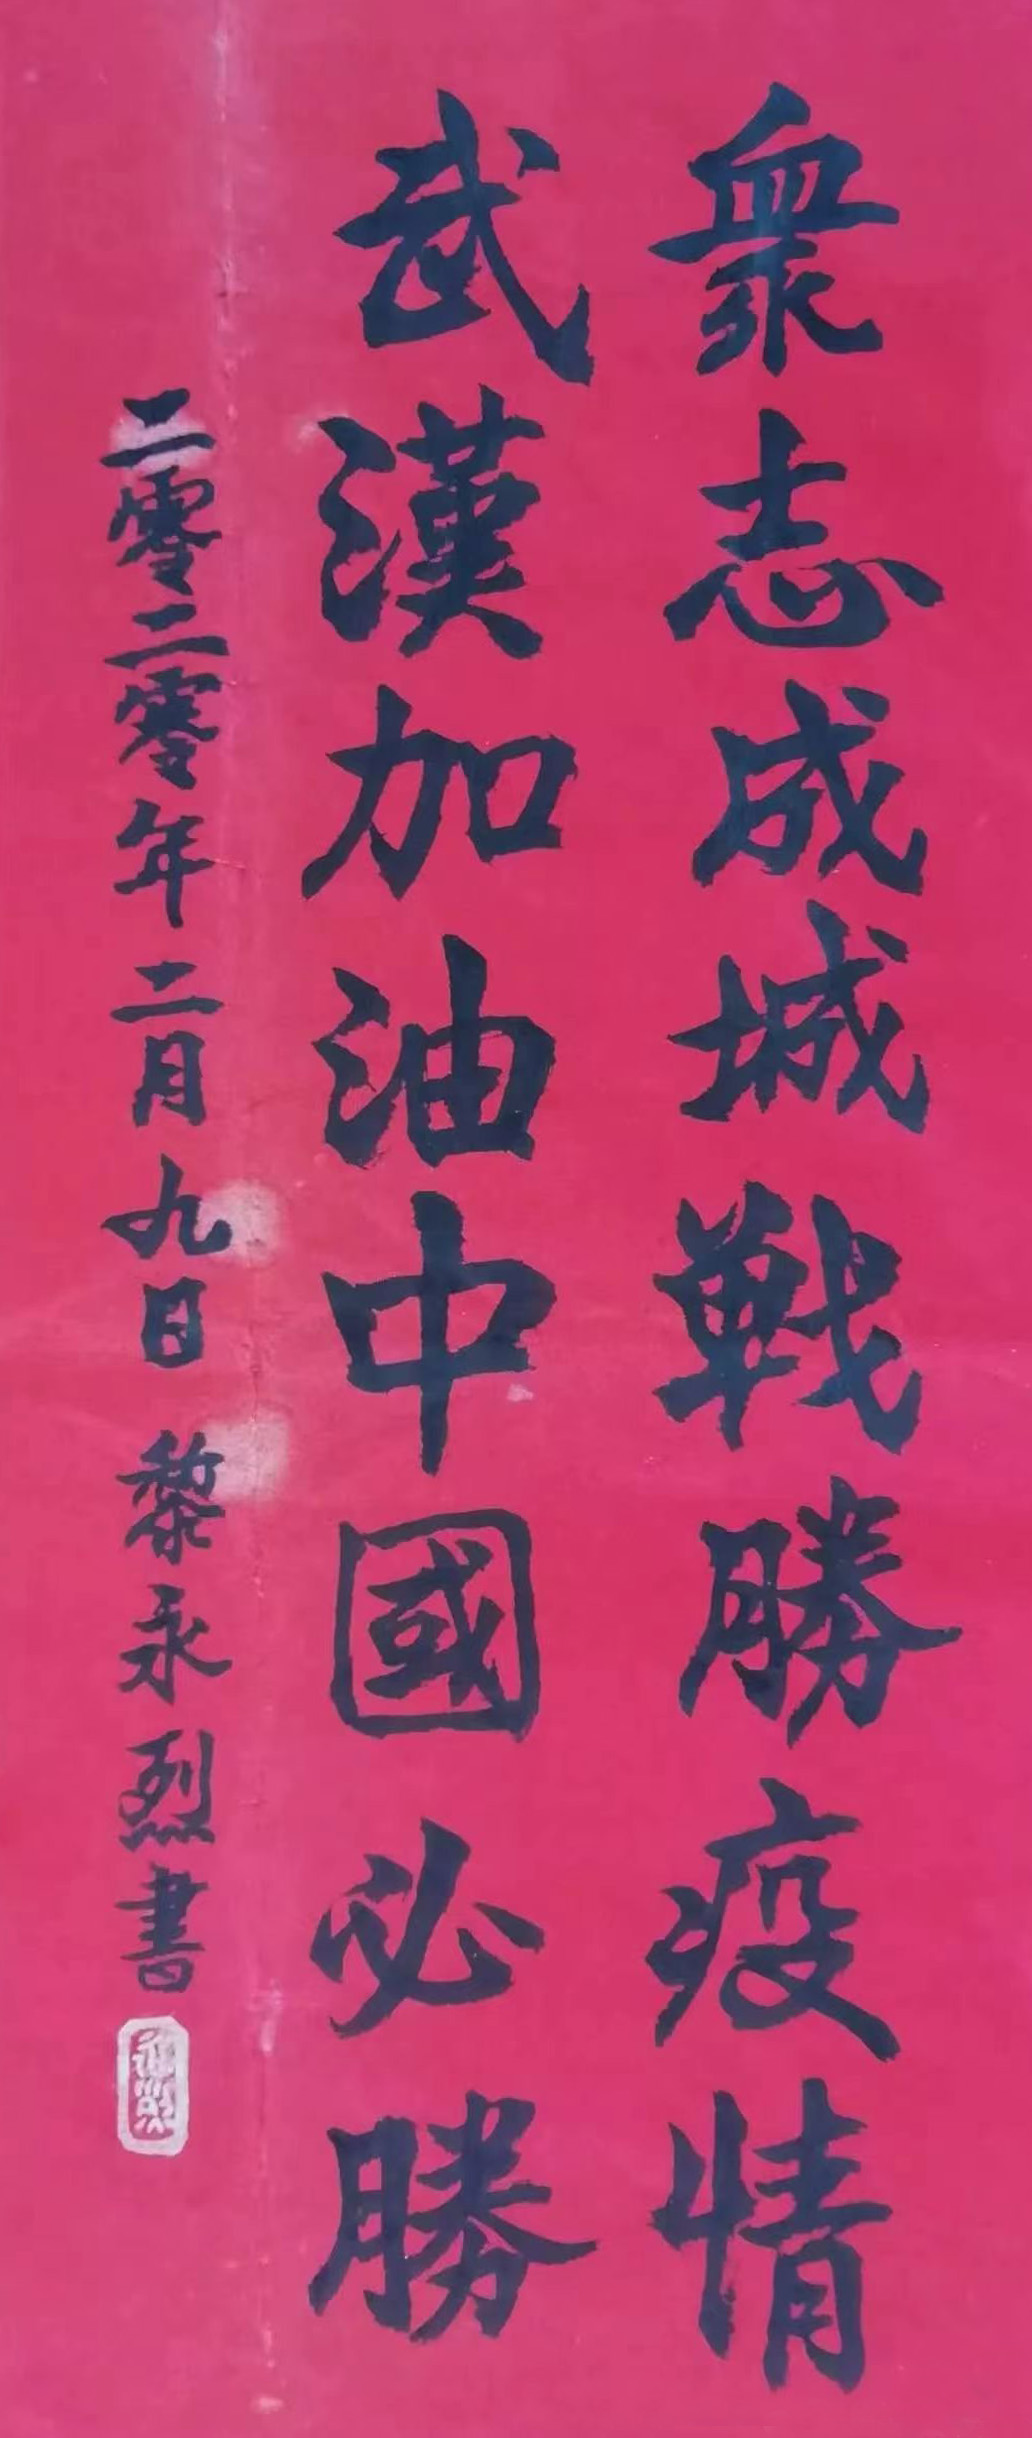 衆志成城戰勝疫情
武漢加油中國必勝
二零二零年二月九日 黎永烈書